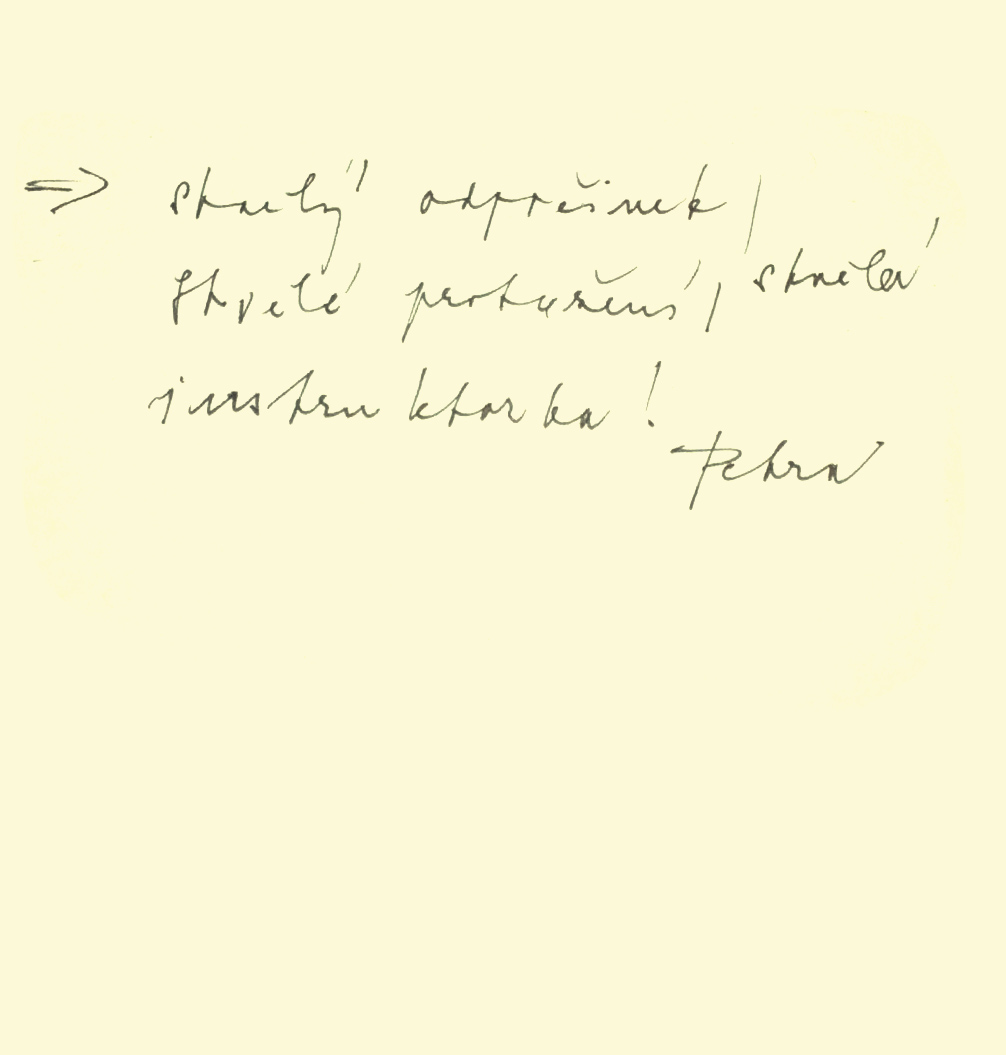 ⇒ skvělý odpočinek,
skvělé protažení, skvělá
instruktorka!
Petra